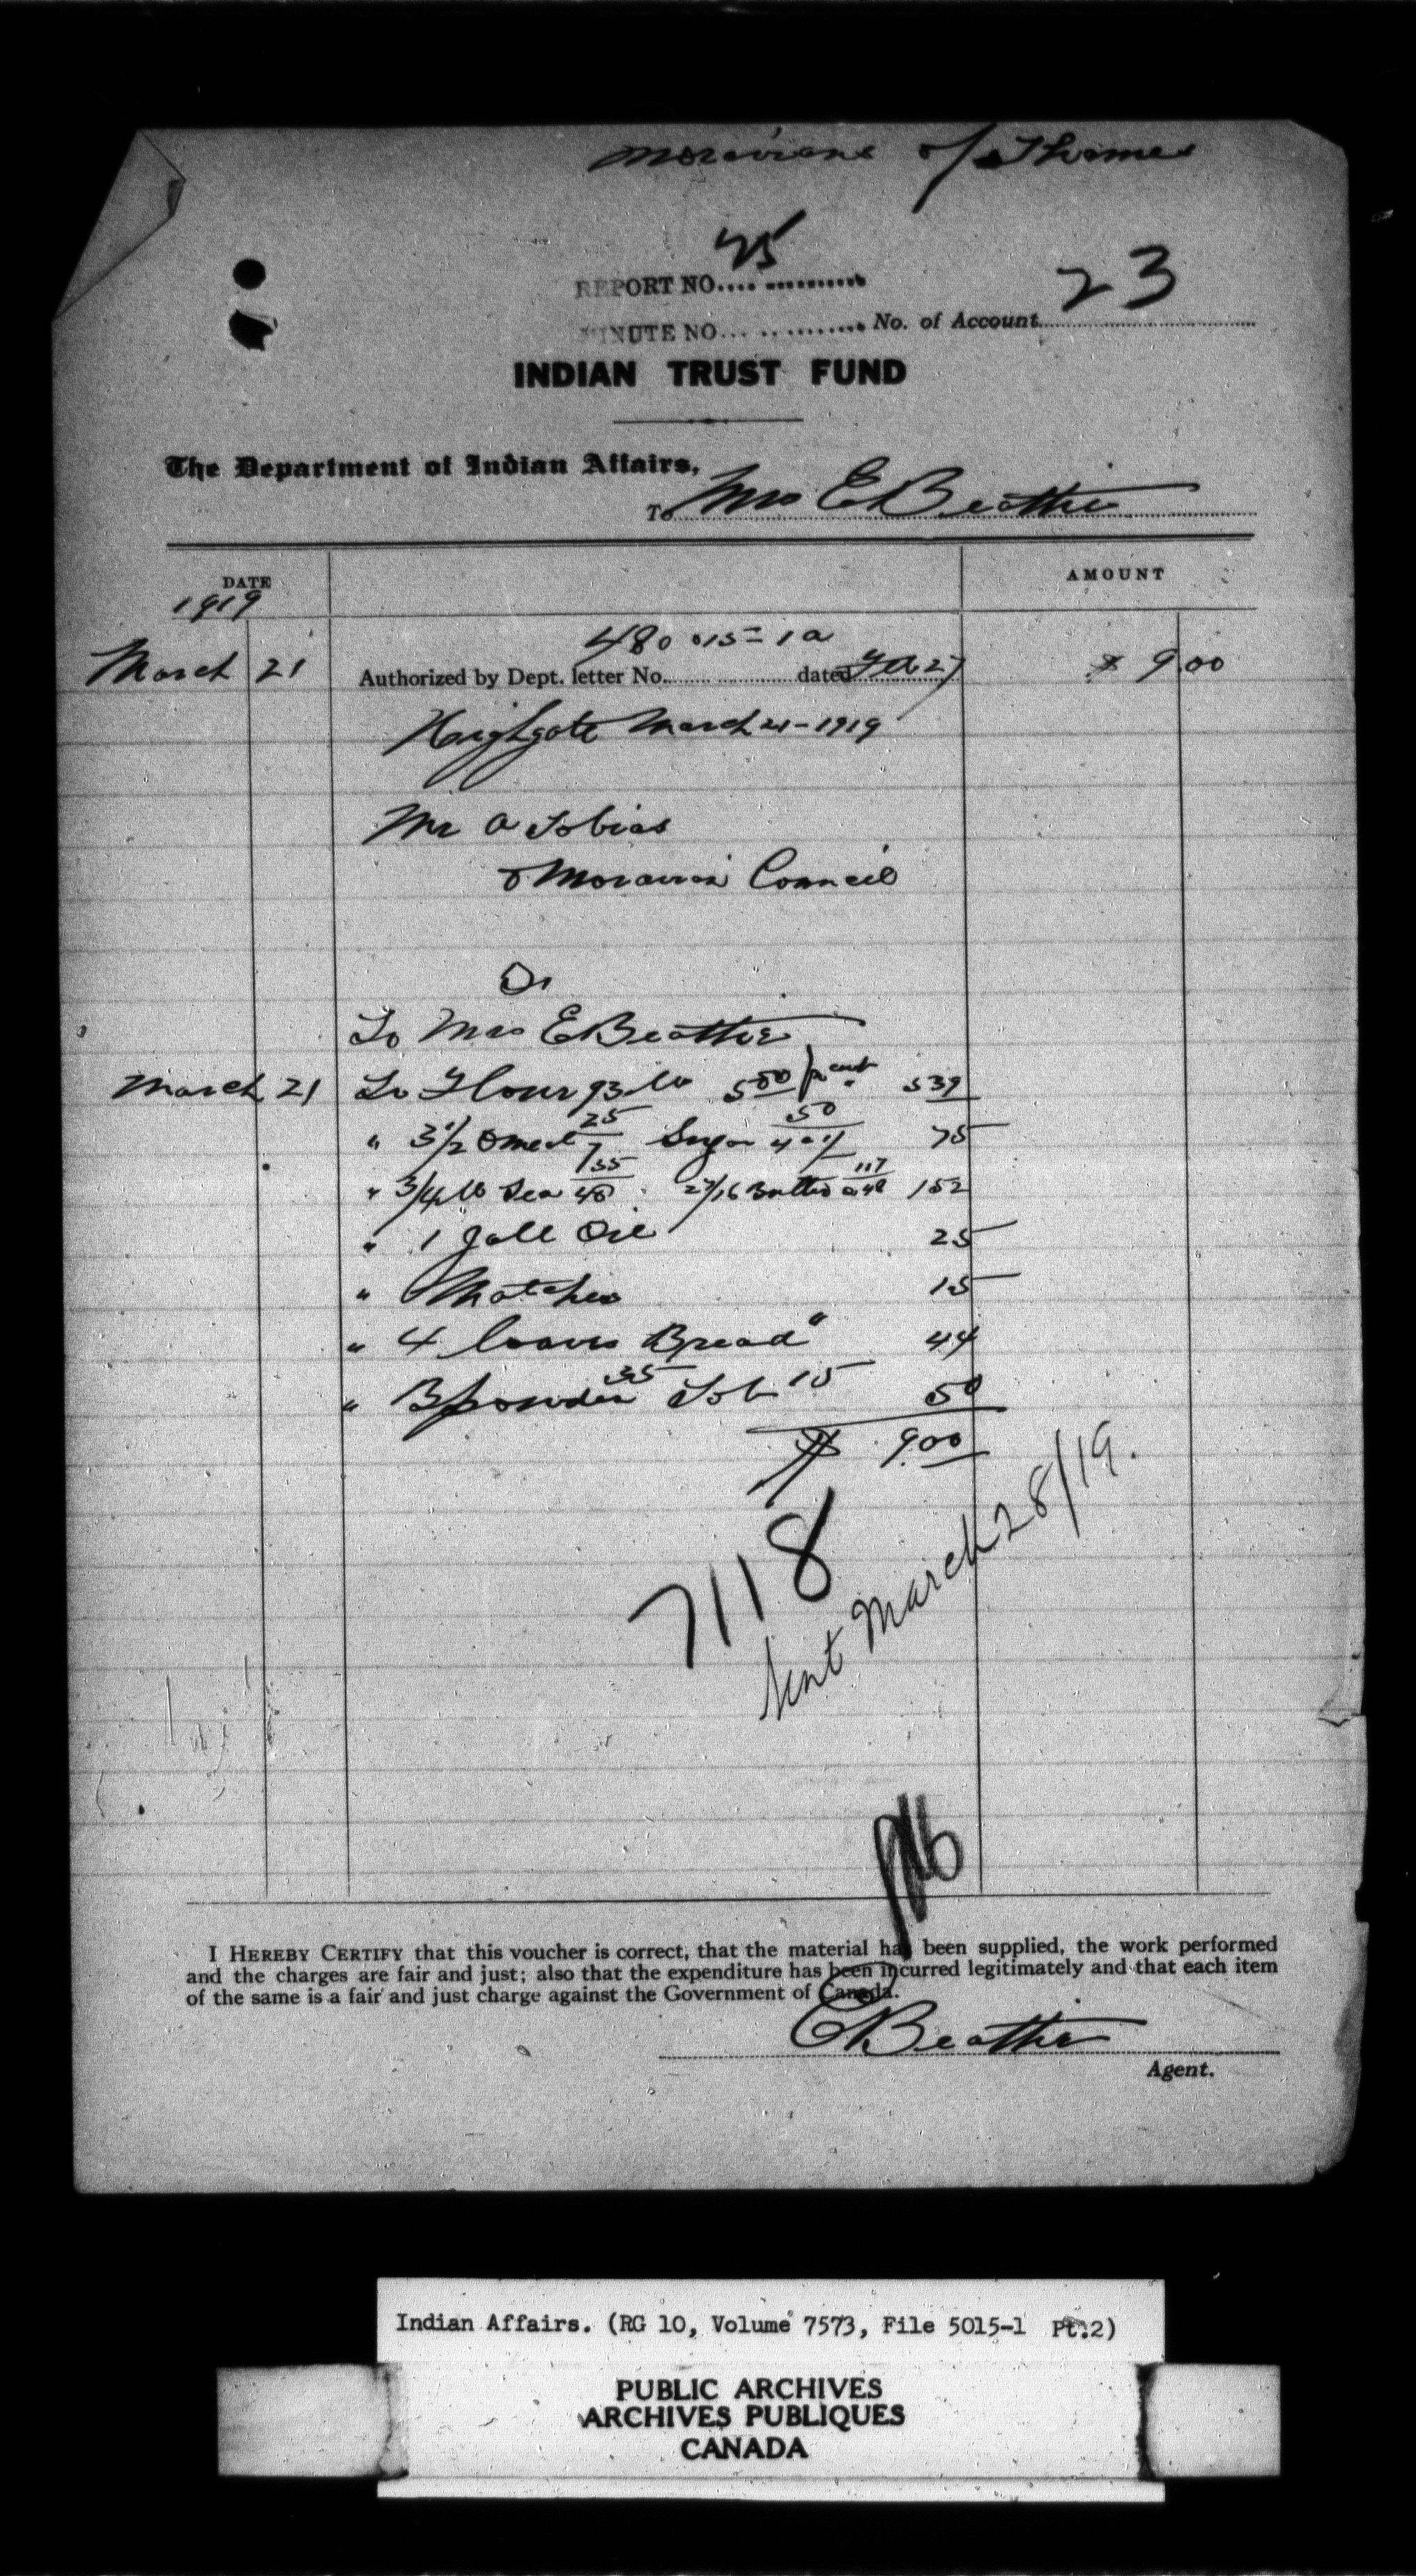 Moravians of Thames
25
REPORT NO....
MINUTE NO... No. of Account 23
INDIAN TRUST FUND
The Department of Indian Affairs,
To Mrs E Beattie
DATE AMOUNT
1919
480 015-1a
March 21 Authorized by Dept. letter No. dated 27 $ 9.00
Highgate March 21-1919
Mr A Tobias
Moravian Council
Dr
To Mrs E Beattie
March 21 To Flour 93 lb 5 80 per cwt 539
" 3 1/2 Omeal 25/7 Sugar 50 75
" 3/4 lb Tea 35 27/16 Butter 117 152
" 1 gall Oil 25
" Matches 15
" 4 loaves Bread 44
" B powder 35 Tob 15 50
$ 9.00
7118
Sent March 28/19.
I HEREBY CERTIFY that this voucher is correct, that the material has been supplied, the work performed
and the charges are fair and just; also that the expenditure has been incurred legitimately and that each item
of the same is a fair and just charge against the Government of Canada.
E Beattie
Agent.
Indian Affairs. (RG 10, Volume 7573, File 5015-1 Pt.2)
PUBLIC ARCHIVES
ARCHIVES PUBLIQUES
CANADA